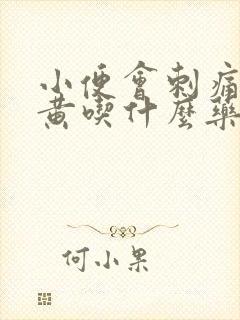 小便會刺痛
黃喫什麼藥
何小果